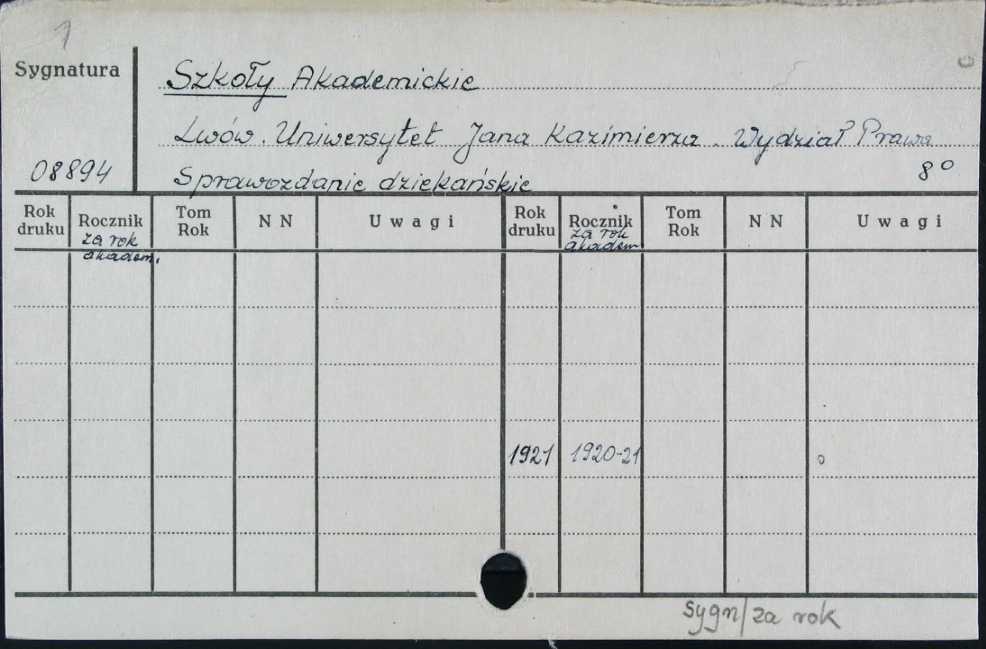 1
Sygnatura
Szkoły Akademickie
Lwów. Uniwersytet Jana Kazimierza. Wydział Prawa
08894
Sprawozdanie dziekańskie 8°
Rok druku Rocznik za rok akadem. Tom Rok N N Uwagi Rok druku Rocznik za rok akadem. Tom Rok N N Uwagi
1921 1920-21
sygn/za rok